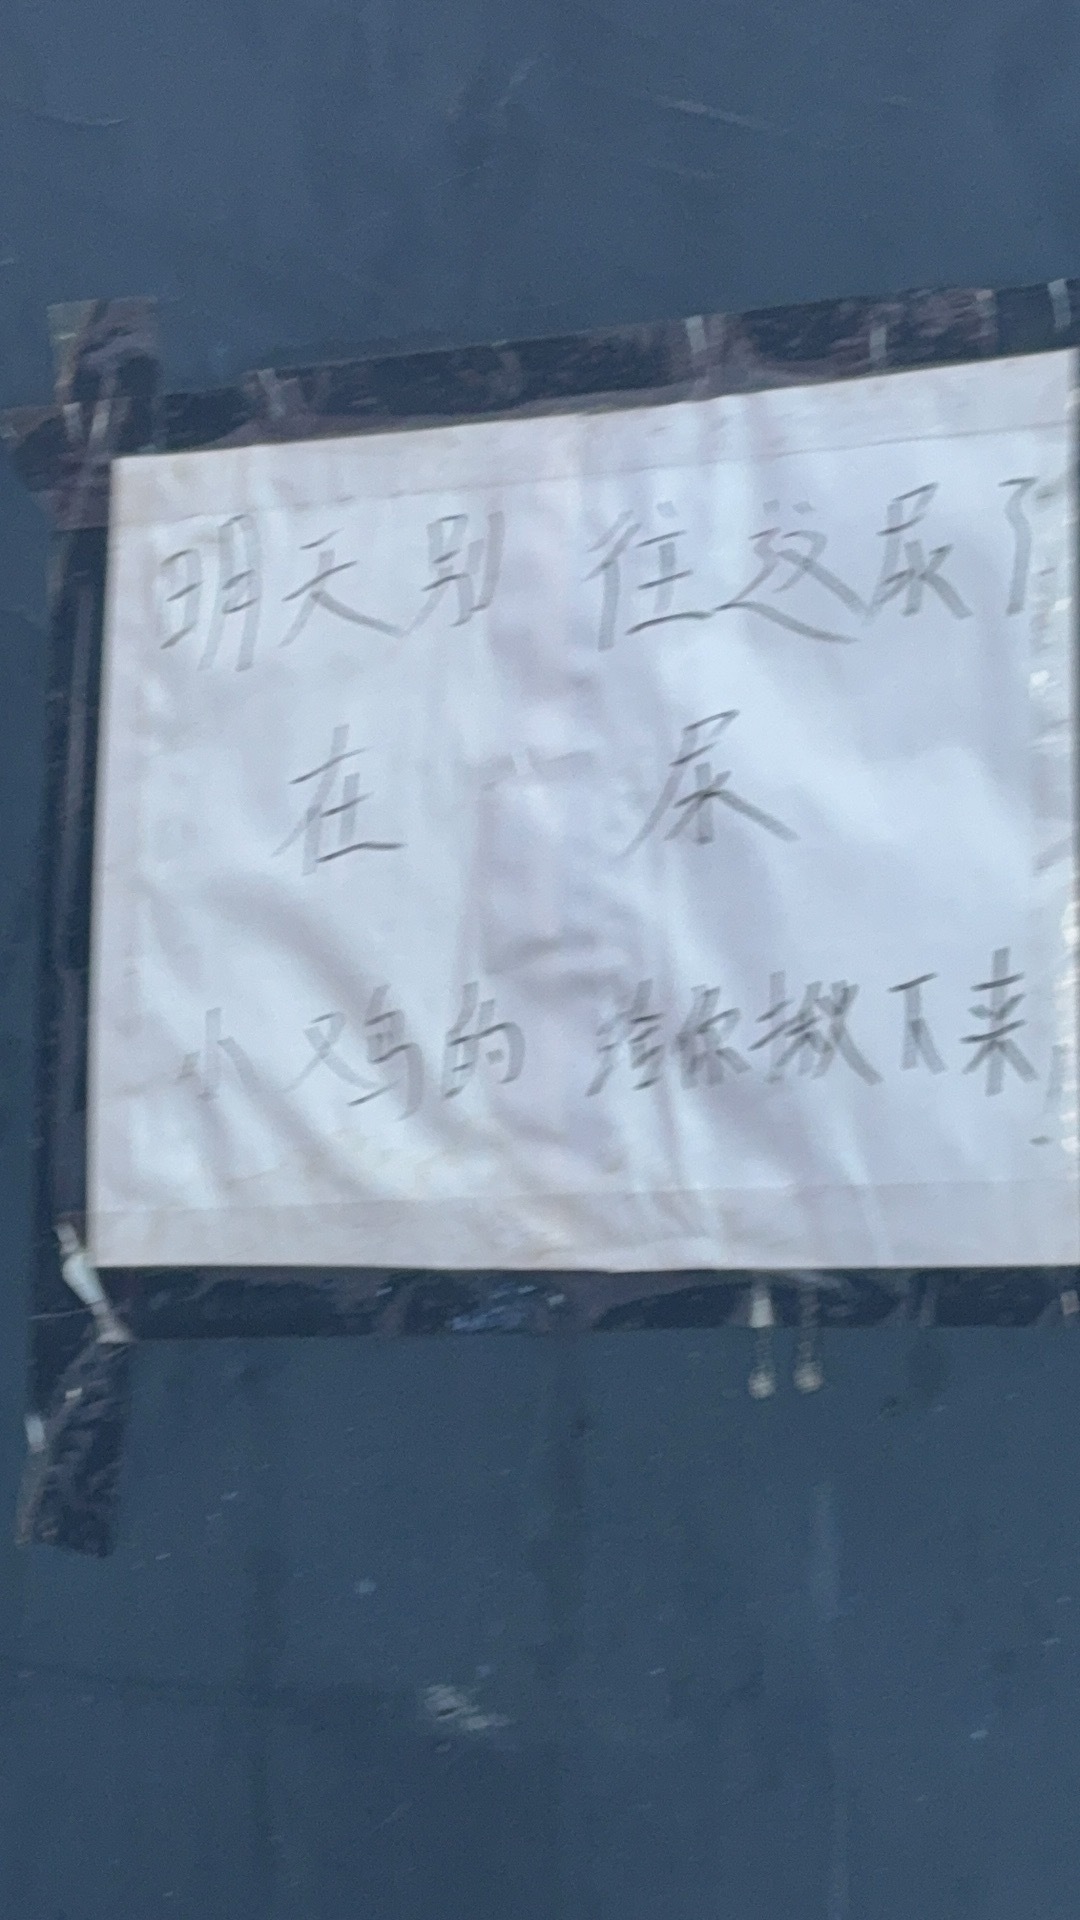 明天别往这尿了
在尿
小鸡的给你撤下来